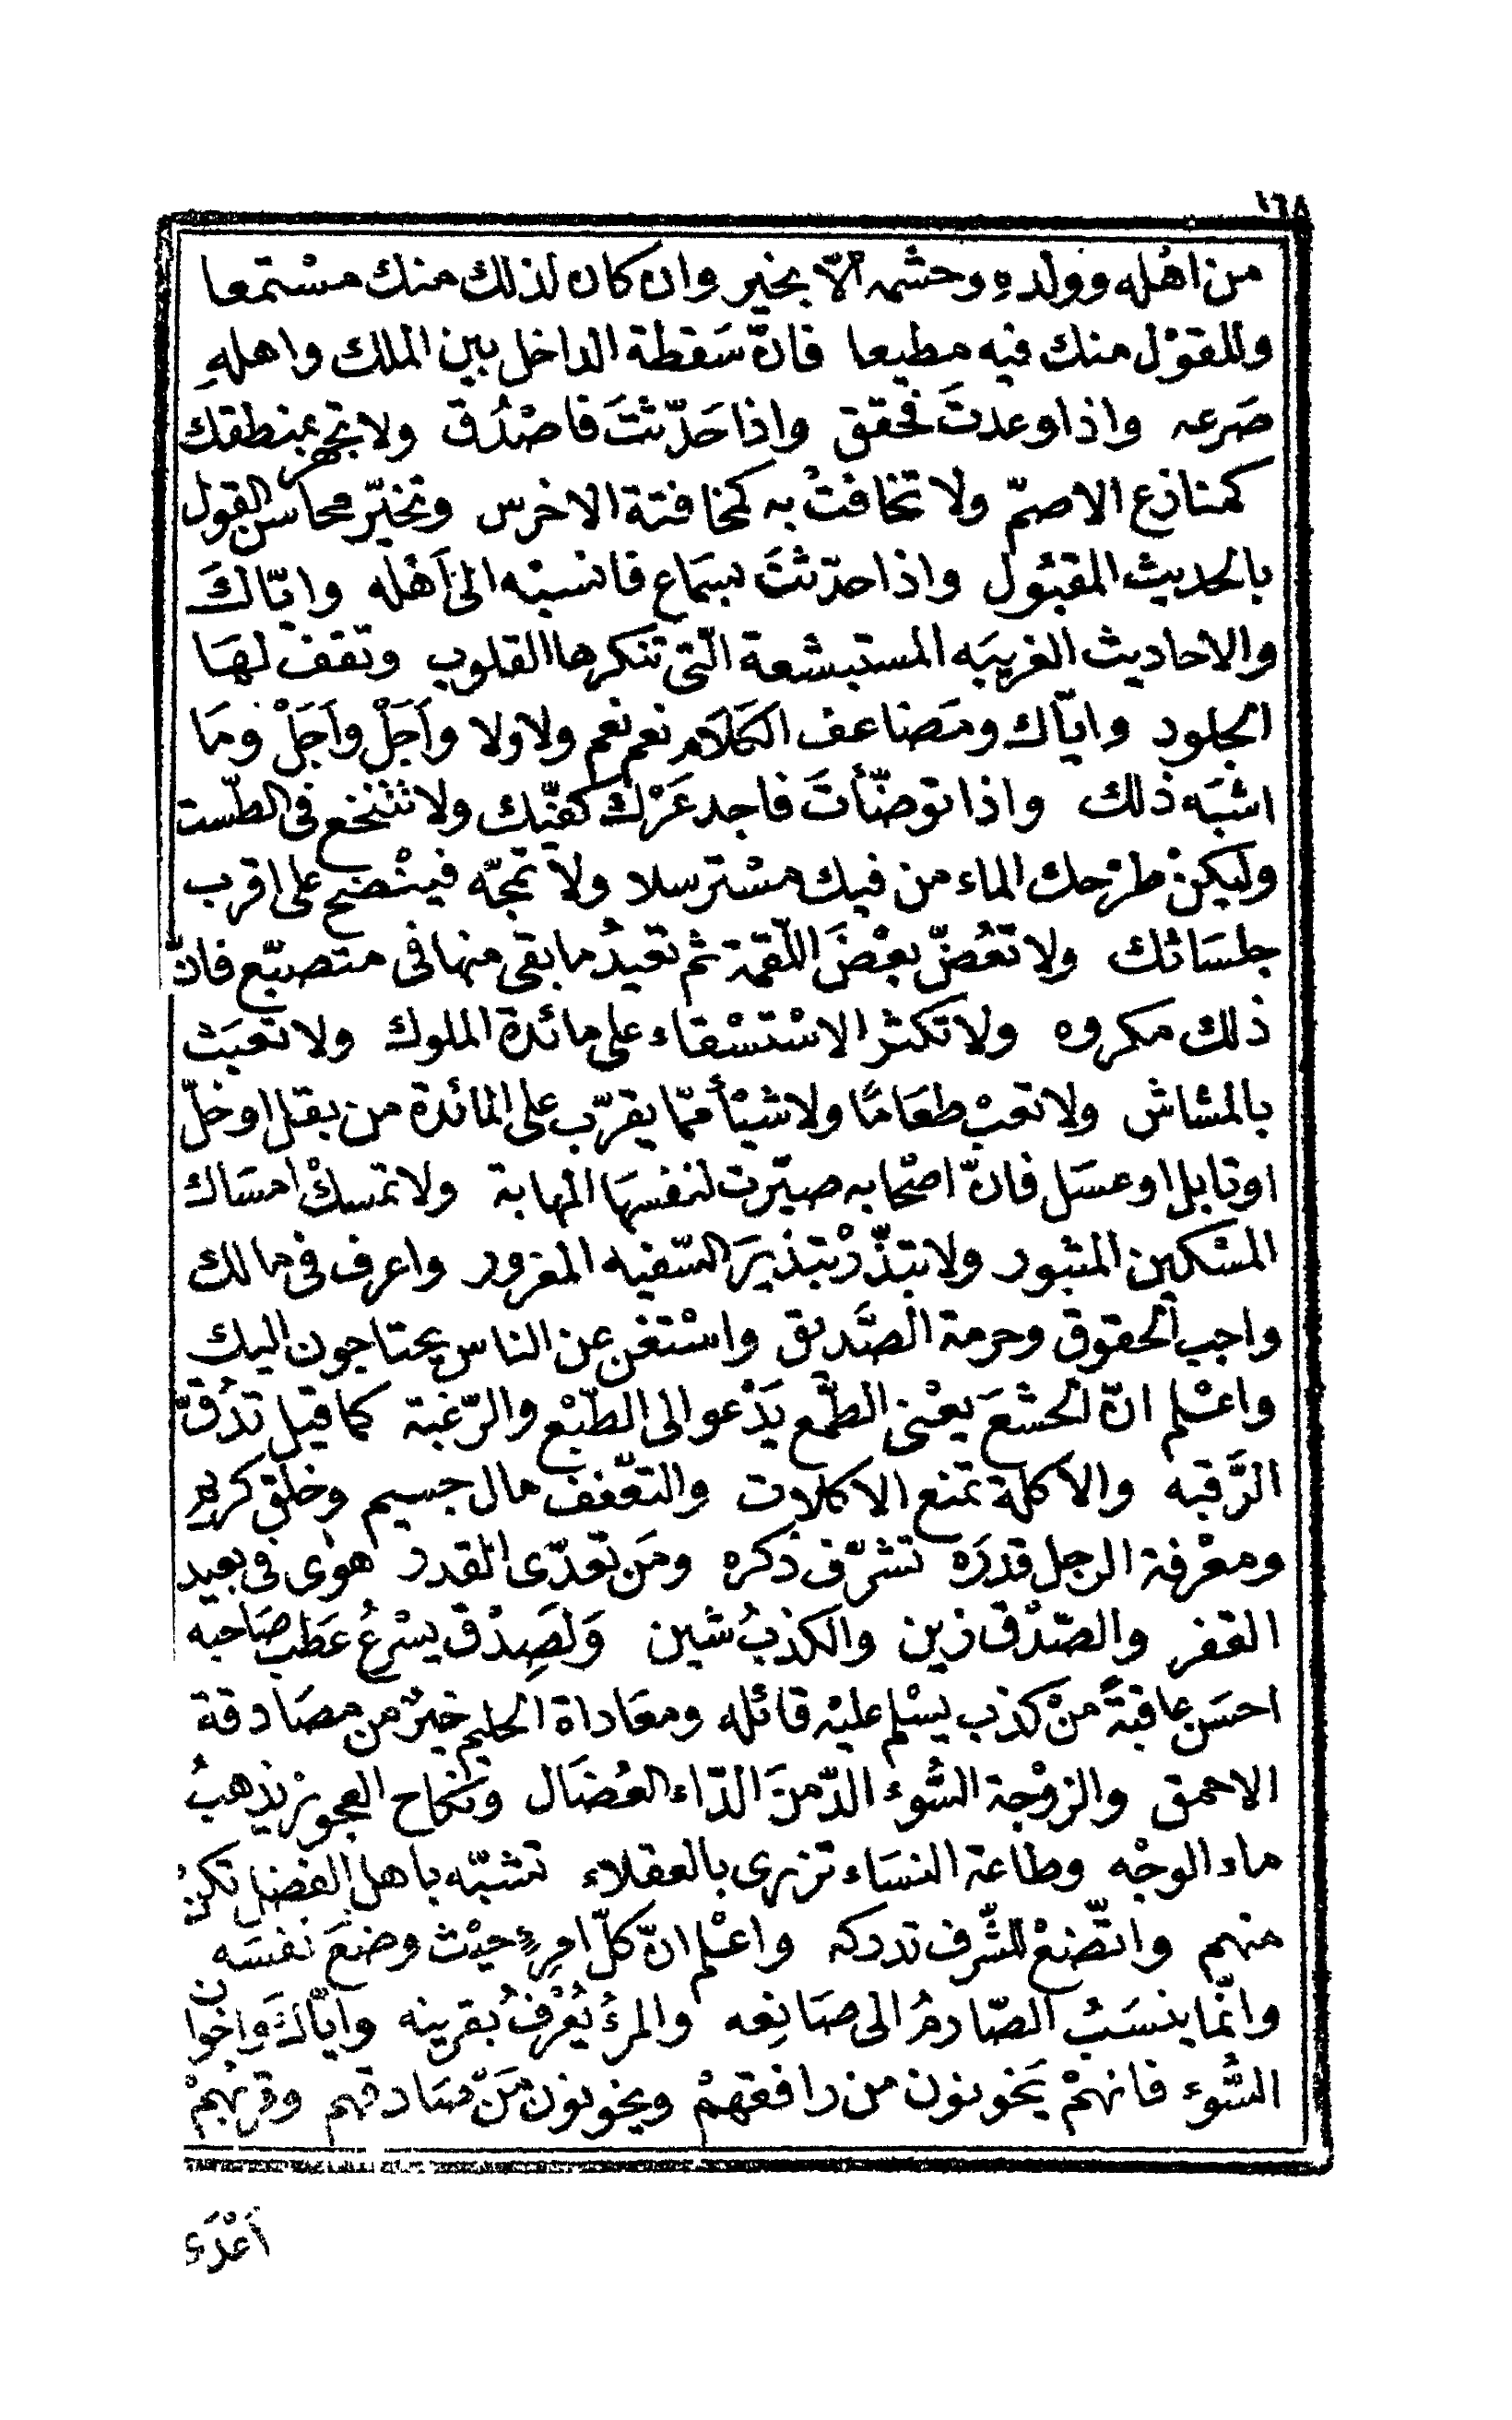 ١٦٨
من اهْله وولده وحشمه الّا بخير وان كان لذلك منك مسْتمعا
وللقوْل منك فيه مطيعا فانّ سَقطة الداخل بين الملك واهلهِ
صَرعه واذا وعدتَ فحقق واذا حَدّثتَ فاصْدُق ولا تجهر بمنطقك
كمنازع الاصمّ ولا تخافتْ به كمخافتة الاخرس وتخيّر محاسن القول
بالحديث المقبُول واذا حدّثتَ بسَماع فانسبْه الى اَهْله وايّاكَ
والاحاديث الغريبَه المستبشعة الّتى تنكرها القلوب وتقف لهَا
الجلود وايّاك ومَضاعف الكَلَام نعم نعم ولا ولا واَجَلْ واَجَلْ وما
اشبَه ذلك واذا توضّأتَ فاجد عَرْك كفيّك ولا تتنخع فى الطّست
وليكنْ طرْحك الماء من فيك مسْترسلا ولا تمجّه فينْضح على اقرب
جلسَائك ولا تعُضّ بعْضَ اللّقمة ثم تعيدُ ما بقى منها فى متصبّع فانّ
ذلك مكروه ولا تكثر الاسْتسْقاء على مائدة الملوك ولا تعبَث
بالمشاش ولا تعبْ طعَامًا ولا شيْأ ممّا يقرّب على المائدة من بقل او خلّ
او تابل او عسَل فانّ اصْحابه صيّرت لنفسهَا المهابة ولا تمسكْ امسَاك
المسْكين المثبور ولا تبذّرْ تبذيرَ السّفيه المغرور واعرف فى مالك
واجب الحقوق وحرمة الصَّديق واسْتغن عن الناس يحتاجون اليك
واعْلم انّ الجشعَ يعْنى الطّمع يَدْعو الى الطّبْع والرّغبة كما قيل تدُقّ
الرَّقبه والاكلة تمنع الاكلات والتعّفف مال جسيم وخلق كريم
ومعْرفة الرجل قدرَه تشرّف ذكره ومَن تعدّى القدر هوَى فى بعيد
القفر والصّدْق زين والكذبُ شين وَلَصِدْق يسْرعُ عَطب صَاحبه
احسَن عاقبةً منْ كذب يسْلم عليْه قائله ومعَاداة الحليم خيرٌ من مصَادقة
الاحمق والزوْجة السُّوء الدّ منَ الدّاء العُضَال ونكاح العجوز يذهبُ
ماء الوجْه وطاعة النسَاء تزرى بالعقلاء تشبّه باهل الفضل تكنْ
منهم واتّضعْ للشّرف تدركه واعْلم انّ كلّ امرءٍ حيْث وضعَ نفسَه
وانّما ينسَبُ الصّارمُ الى صَانِعه والمرءُ يُعْرفُ بقرينه وايّاكَ واخوان
السُّوء فانهمْ يَخونون من رافقهمْ ويخونون مَنْ صَادقهم وقربهُمْ